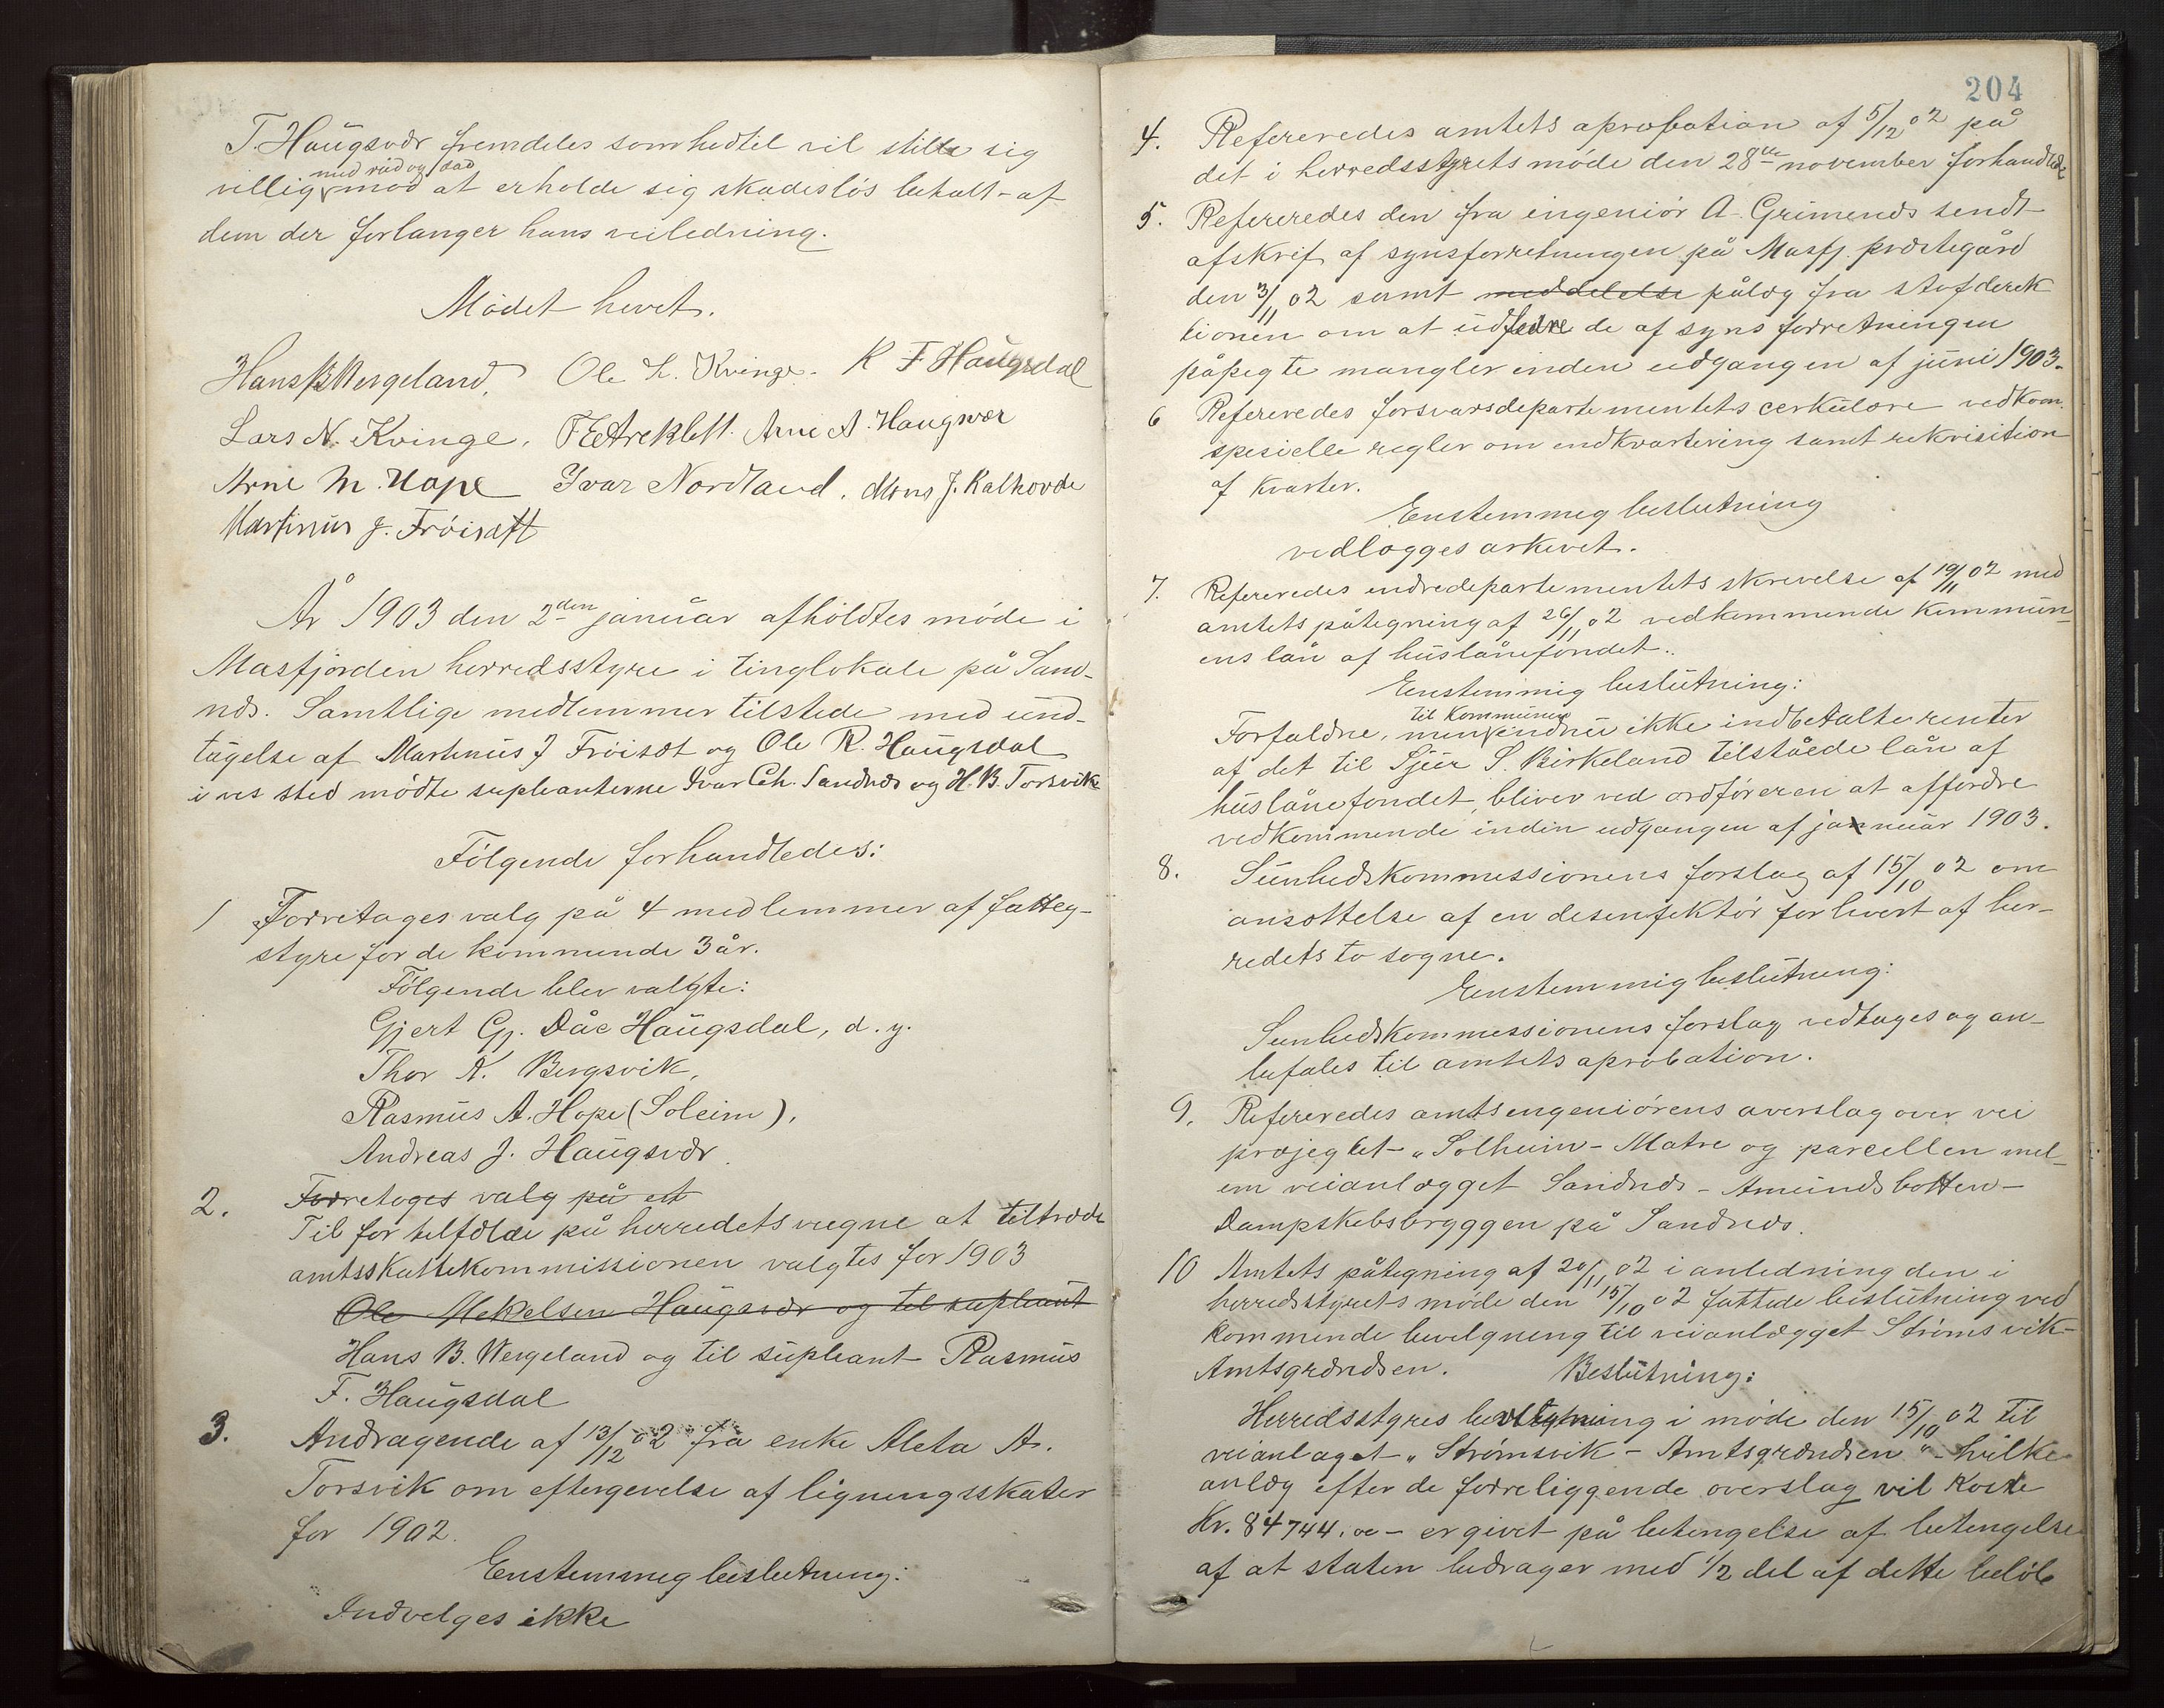 T. Haugsvær fremdeles som hedtil vil stille sig
med råd og dåd
villig mod at erholde sig skadesløs betalt af
dem der forlanger hans veiledning.
Mødet hevet.
Hans B Wergeland, Ole L. Kvinge. R F Haugsdal
Lars N. Kvinge. Arne A. Haugsvær
Arne M. Hope Ivar Nordland. Mons J. Kalhovde
Martinus J. Frøiset
År 1903 den 2den januar afholdtes møde i
Masfjorden herredsstyre i tinglokale på Sand-
næs. Samtlige medlemmer tilstede med und-
tagelse af Martinus J Frøiset og Ole R. Haugsdal
i ves sted mødte supleanterne Ivar Ch. Sandnæs og H. B. Torsvik
Følgende forhandledes:
1 Forretages valg på 4 medlemmer af fatteg-
styre for de kommende 3 år.
Følgende blev valgte:
Gjert Gj. Dåe Haugsdal, d. y.
Thor K. Bergsvik,
Rasmus A. Hope (Soleim),
Andreas J. Haugsvær.
2. Forretages valg på et
Til for tilfælde på herredets vegne at tiltræde
amtsskattekommissionen valgtes for 1903
Ole Mekelsen Haugsvær og til supleant
Hans B. Wergeland og til supleant Rasmus
F. Haugsdal
3. Andragende af 13/12 02 fra enke Aleta A.
Torsvik om eftergevelse af ligningsskater
for 1902.
Enstemmeg beslutning:
Indvelges ikke
204
4. Refereredes amtets aprobation af 5/12 02 på
det i herredsstyrets møde den 28de november forhandlede
5. Refereredes den fra ingeniør A. Grimends sendt
afskrift af synsforretnengen på Masfj. prestegård
den 3/11 02 samt meddelelse pålæg fra stofderek
tionen om at udfedre de af syns forretningen
påpegte mangler inden udgangen af juni 1903.
6 Refereredes forsvarsdepartementets cerkulære vedkom.
spesielle regler om endkvartering samt rekvisition
af kvarter.
Enstemmeg beslutning
vedlægges arkevet.
7. Refereredes endredepartementets skrevelse af 19/11 02 med
amtets påtegning af 26/11 02 vedkommende kommun-
ens lån af huslånefondet.
Eenstemmig beslutning:
til kommunen
Forfaldne, men endnu ikke indbetalte renter
af det til Sjur S. Birkeland tilståede lån af
huslånefondet, bliver ved ordføreren at affordre
vedkommende inden udgangen af januar 1903.
8. Sunhedskommessionens forslag af 15/10 02 om
ansættelse af en desenfektør for hvert af her-
redets to sogne.
Eenstemmig beslutneng:
Sunhedskommessionens forslag vedtages og an-
befales til amtets aprobation.
9. Refereredes amtsengeniørens averslag over vei
projegtet "Solheim - Matre og parcellen mel-
em veianlægget Sandnæs - Amundsbotten -
Dampskebsbrygggen på Sandnæs.
10 Amtets påtegning af 20/11 02 i anledning den i
herredsstyrets møde den 15/10 02 fattede beslutning ved
kommende bevelgneng til veianlægget Strømsvik-
Amtsgrændsen. Beslutning:
Herredsstyres bevelgning i møde den 15/10 02 til
veianlaget "Strømsvik - Amtsgrændsen" - hvilke
anlæg efter de forreliggende overslag vil koste
Kr. 84744.00 - er givet på betengelse af betengelse
af at staten bedrager med 1/2 del af dette beløb